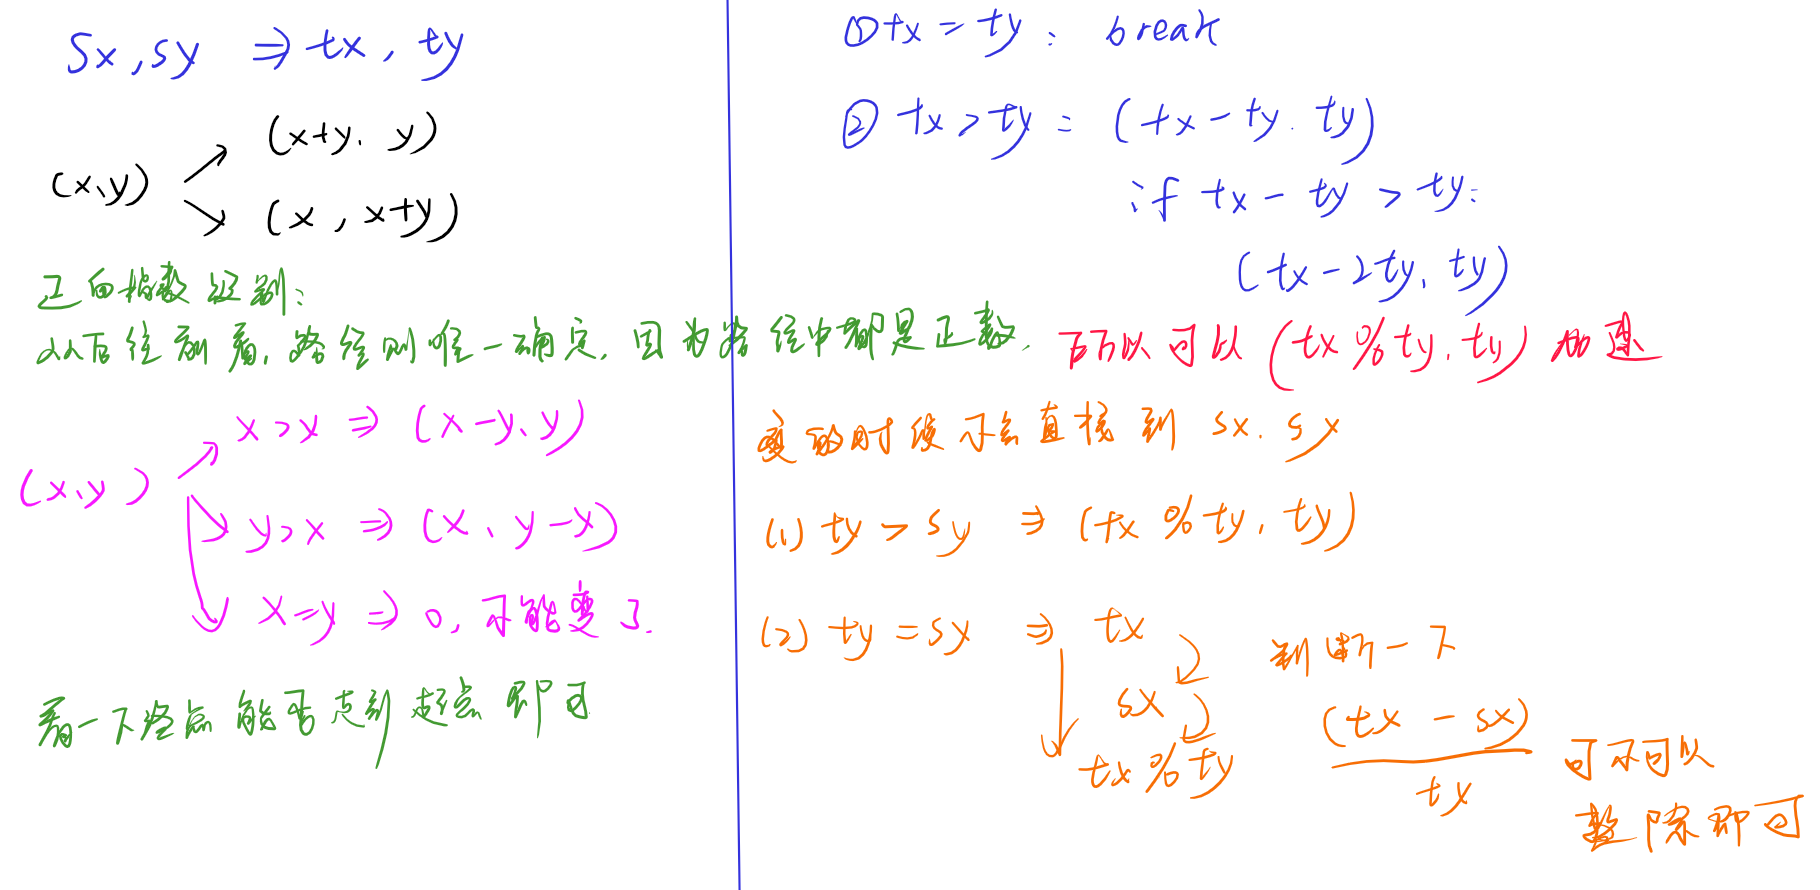 sx, sy ⇒ tx, ty
(x+y, y)
(x,y)
(x, x+y)
正向指数级别:
从后往前看,路径则唯一确定,因为路径中都是正数,
x>x ⇒ (x-y, y)
(x,y)
y>x ⇒ (x, y-x)
x=y ⇒ 0, 不能变了.
看一下终点能否走到起点即可
① tx = ty: break
② tx > ty: (tx-ty, ty)
if tx - ty > ty:
(tx-2ty, ty)
所以可以 (tx % ty, ty) 加速
变的时候不会直接到 sx, sy
(1) ty > sy ⇒ (tx % ty, ty)
(2) ty = sy ⇒ tx
sx
tx % ty
判断一下
(tx - sx)
tx
可不可以
整除即可